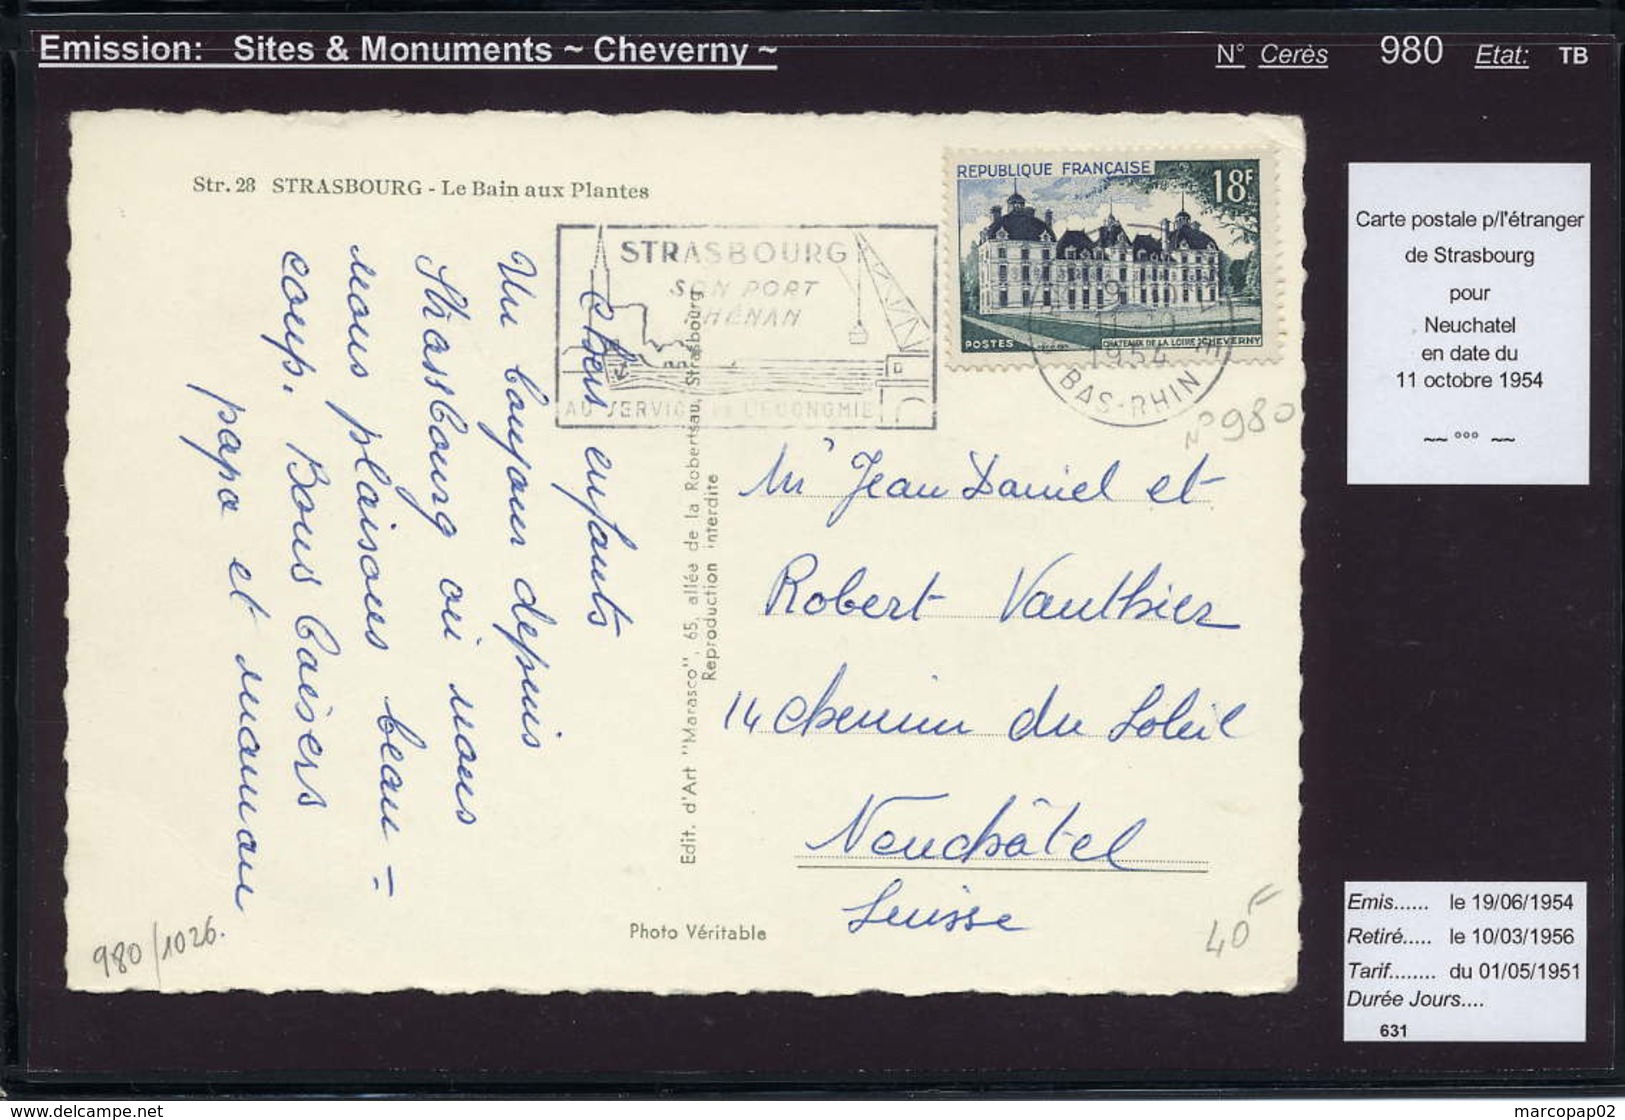 Emission: Sites & Monuments ~ Cheverny ~
N° Cerès 980 Etat: TB
Str. 28 STRASBOURG - Le Bain aux Plantes
STRASBOURG
SON PORT
RHÉNAN
AU SERVICE DE L'ECONOMIE
REPUBLIQUE FRANÇAISE
18F
POSTES
CHATEAUX DE LA LOIRE CHEVERNY
1954
BAS-RHIN
N° 980
Chers enfants
Un bonjour depuis
Strassbourg où nous
nous plaisons beau=
coup. Bons baisers
papa et maman
Edit. d'Art "Marasco", 65, allée de la Robertsau, Strasbourg
Reproduction interdite
Mr Jean Daniel et
Robert Vauthier
14 chemin du Soleil
Neuchâtel
Suisse
Photo Véritable
980/1026.
40F
Carte postale p/l'étranger
de Strasbourg
pour
Neuchatel
en date du
11 octobre 1954
~~ °°° ~~
Emis...... le 19/06/1954
Retiré..... le 10/03/1956
Tarif........ du 01/05/1951
Durée Jours....
631
http://www.delcampe.net
marcopap02